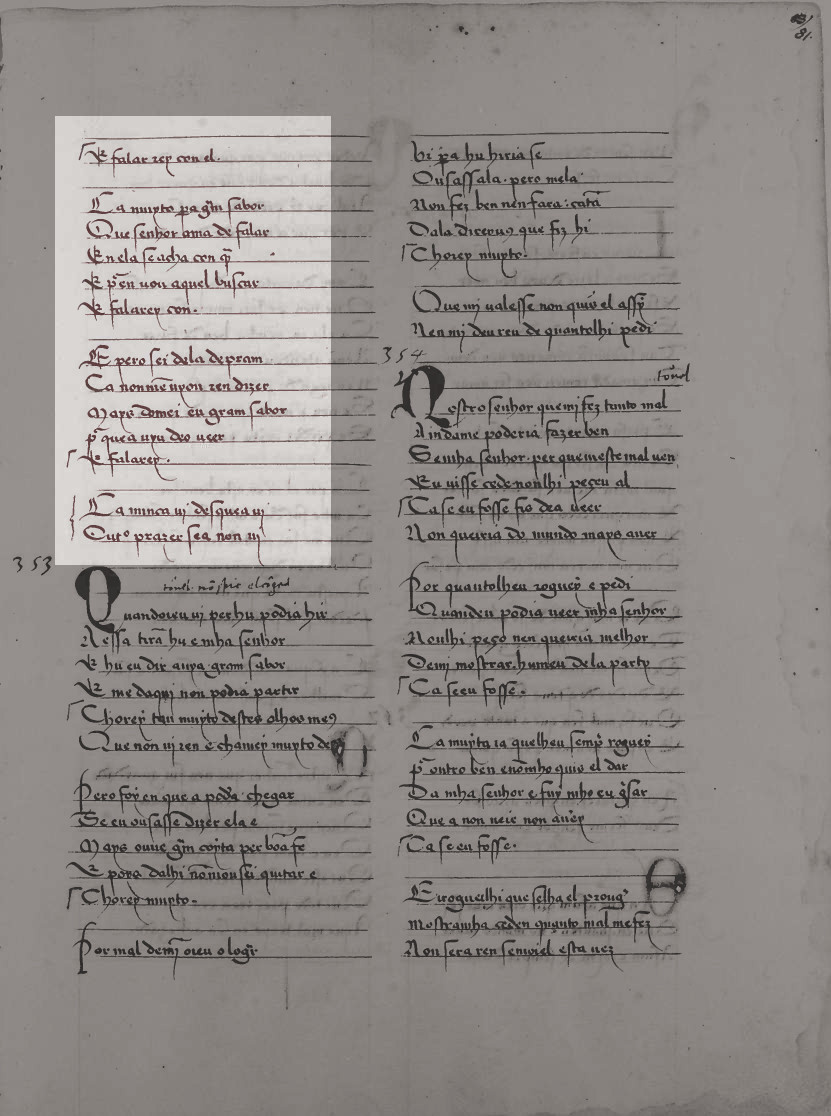 E falar rey con el.
Ca muyto pa gm̃ sabor
Que senhor ama de falar
En ela se acha con q̃
E p̃ en uou aquel buscar
E falarey con.
E pero sei dela de pram
Ca non me uyou ren dizer
Mays domei eu gram sabor
p̃ que a uyu deo ueer
E falarey.
Ca nunca uj des que a uj
Outº prazer se a non uj
353
Quandoieu uj per hu podia hir
Aessa tirã hu e mha senhor
E hu eu dir auya gram sabor
E me daquj non podia partir
Chorey tan muyto destes olhos me9
Que non uj ren e chamey muyto
Pero foy en que a podia chegar
Se eu ousasse dizer ela e
Mays ouue gm̃ coyta per boa fe
E pora dalhi non ouu sei quitar e
Chorey muyto.
Por mal demj̃ oieu o logr̃
hi pa hu hiria se
Ousassala. pero mela
Non fez ben nen fara: catã
Dala direyus que fiz hi
Chorey muyto.
Que mj ualesse non quis el assy
Nen mj deu reu de quantolhi pedi
354
tornel
Nostro senhor que mj fez tanto mal
Aindame poderia fazer ben
Se mha senhor. per que meste mal uen
Eu uisse cede non lhi peçeu al
Ca se eu fosse fis dea ueer
Non queiria do mundo mays auer
Por quantolheu roguey e pedi
Quandeu podia ueer mha senhor
Nonlhi peço nen queiria melhor
Demj mostrar. hu meu dela party
Ca se eu fosse.
Ca muyta ia quelheu semp̃ roguey
p̃ ontro ben enõmho quis el dar
Da mha senhor e fuy mho eu g̃sar
Que a non ueie non auey
Ca se eu fosse.
E roguelhi que se lha el proug̃
Mostramha ceden quanto mal me fez
Non sera ren se nuiel esta uez